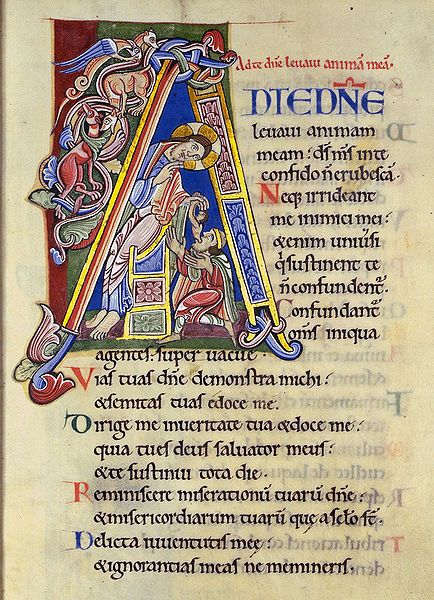 Ad te dn̄e levavi animā meā.
ADTEDN̄E
levavi animam
meam: ds̄ ms̄ inte
confido n̄ erubescā.
Neq; irrideant
me inimici mei:
&enim univsi
qͥ sustinent te
n̄ confundentᷣ.
Confundantᷣ
om̄s iniqua
agentes: super vacue.
Vias tuas dn̄e demonstra michi:
&semitas tuas edoce me.
Dirige me inveritate tua &doce me:
quia tu es deus salvator meus:
&te sustinui tota die.
Reminiscere miserationū tuarū dn̄e:
&misericordiarum tuarū que a sc̄lo st̄.
Delicta iuventutis meę:
&ignorantias meas ne memineris.